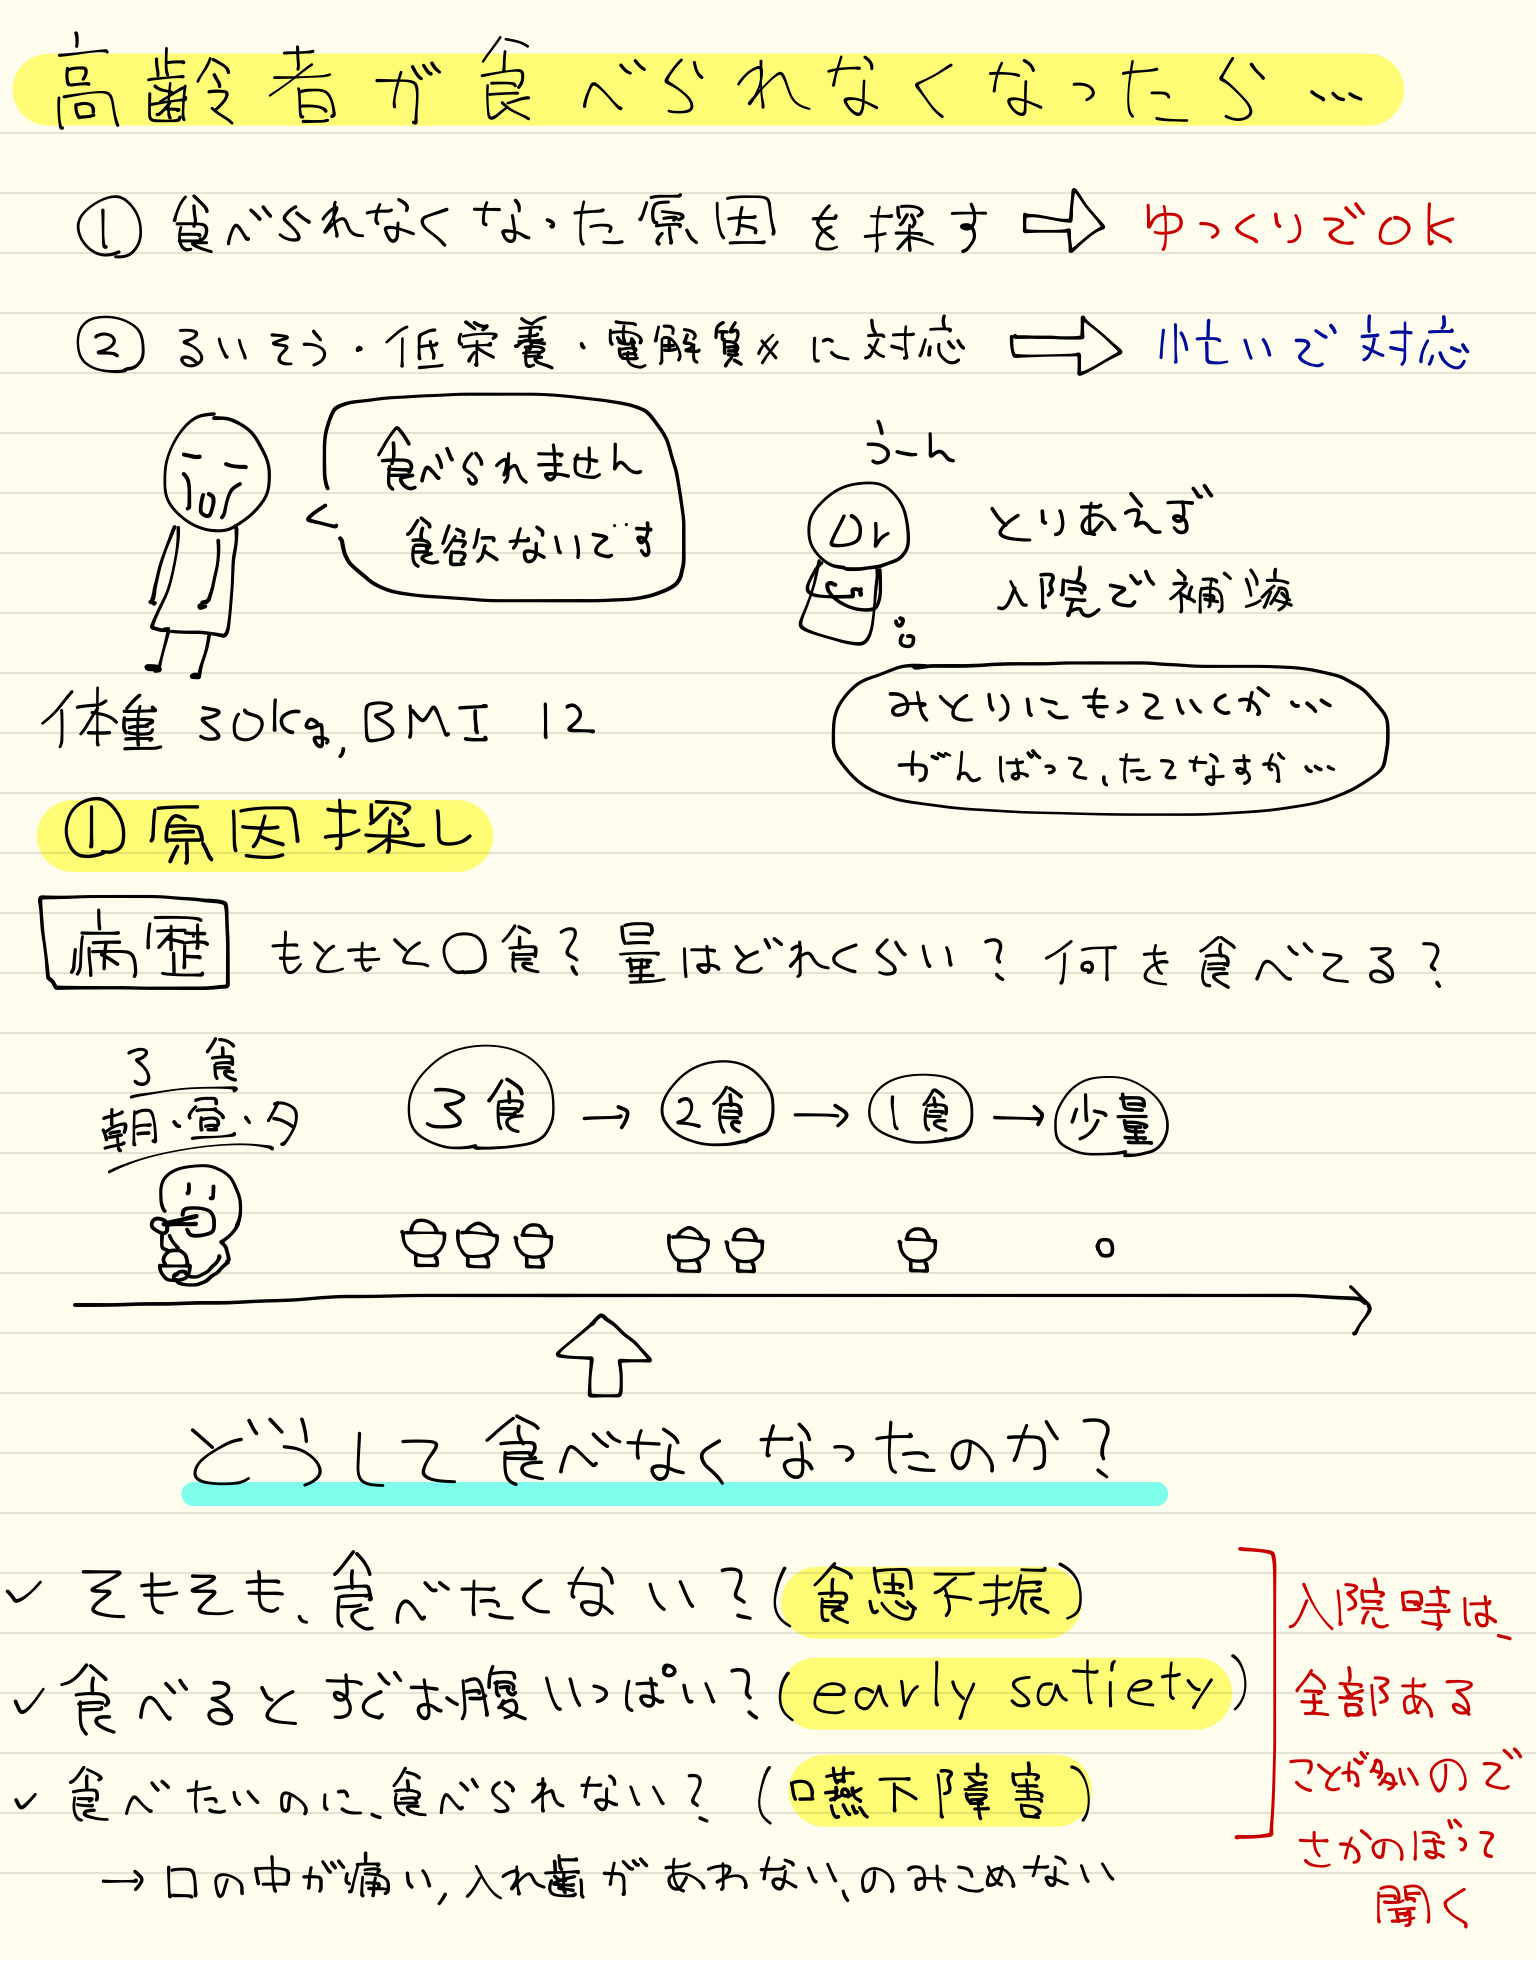 高齢者が食べられなくなったら…
① 食べられなくなった原因を探す ⇨ ゆっくりでOK
② るいそう・低栄養・電解質×に対応 ⇨ 忙いで対応
食べられません
食欲ないです
うーん
Dr
とりあえず
入院で補液
みとりにもっていくか…
がんばって、たてなすか…
体重 30kg, BMI 12
① 原因探し
病歴 もともと〇食? 量はどれくらい? 何を食べてる?
3食
朝・昼・夕
3食 → 2食 → 1食 → 少量
どうして食べなくなったのか?
✓ そもそも、食べたくない?(食思不振)
✓ 食べるとすぐお腹いっぱい?(early satiety)
✓ 食べたいのに、食べられない? (嚥下障害)
→ 口の中が痛い, 入れ歯があわない、のみこめない
入院時は、
全部ある
ことが多いので
さかのぼって
聞く